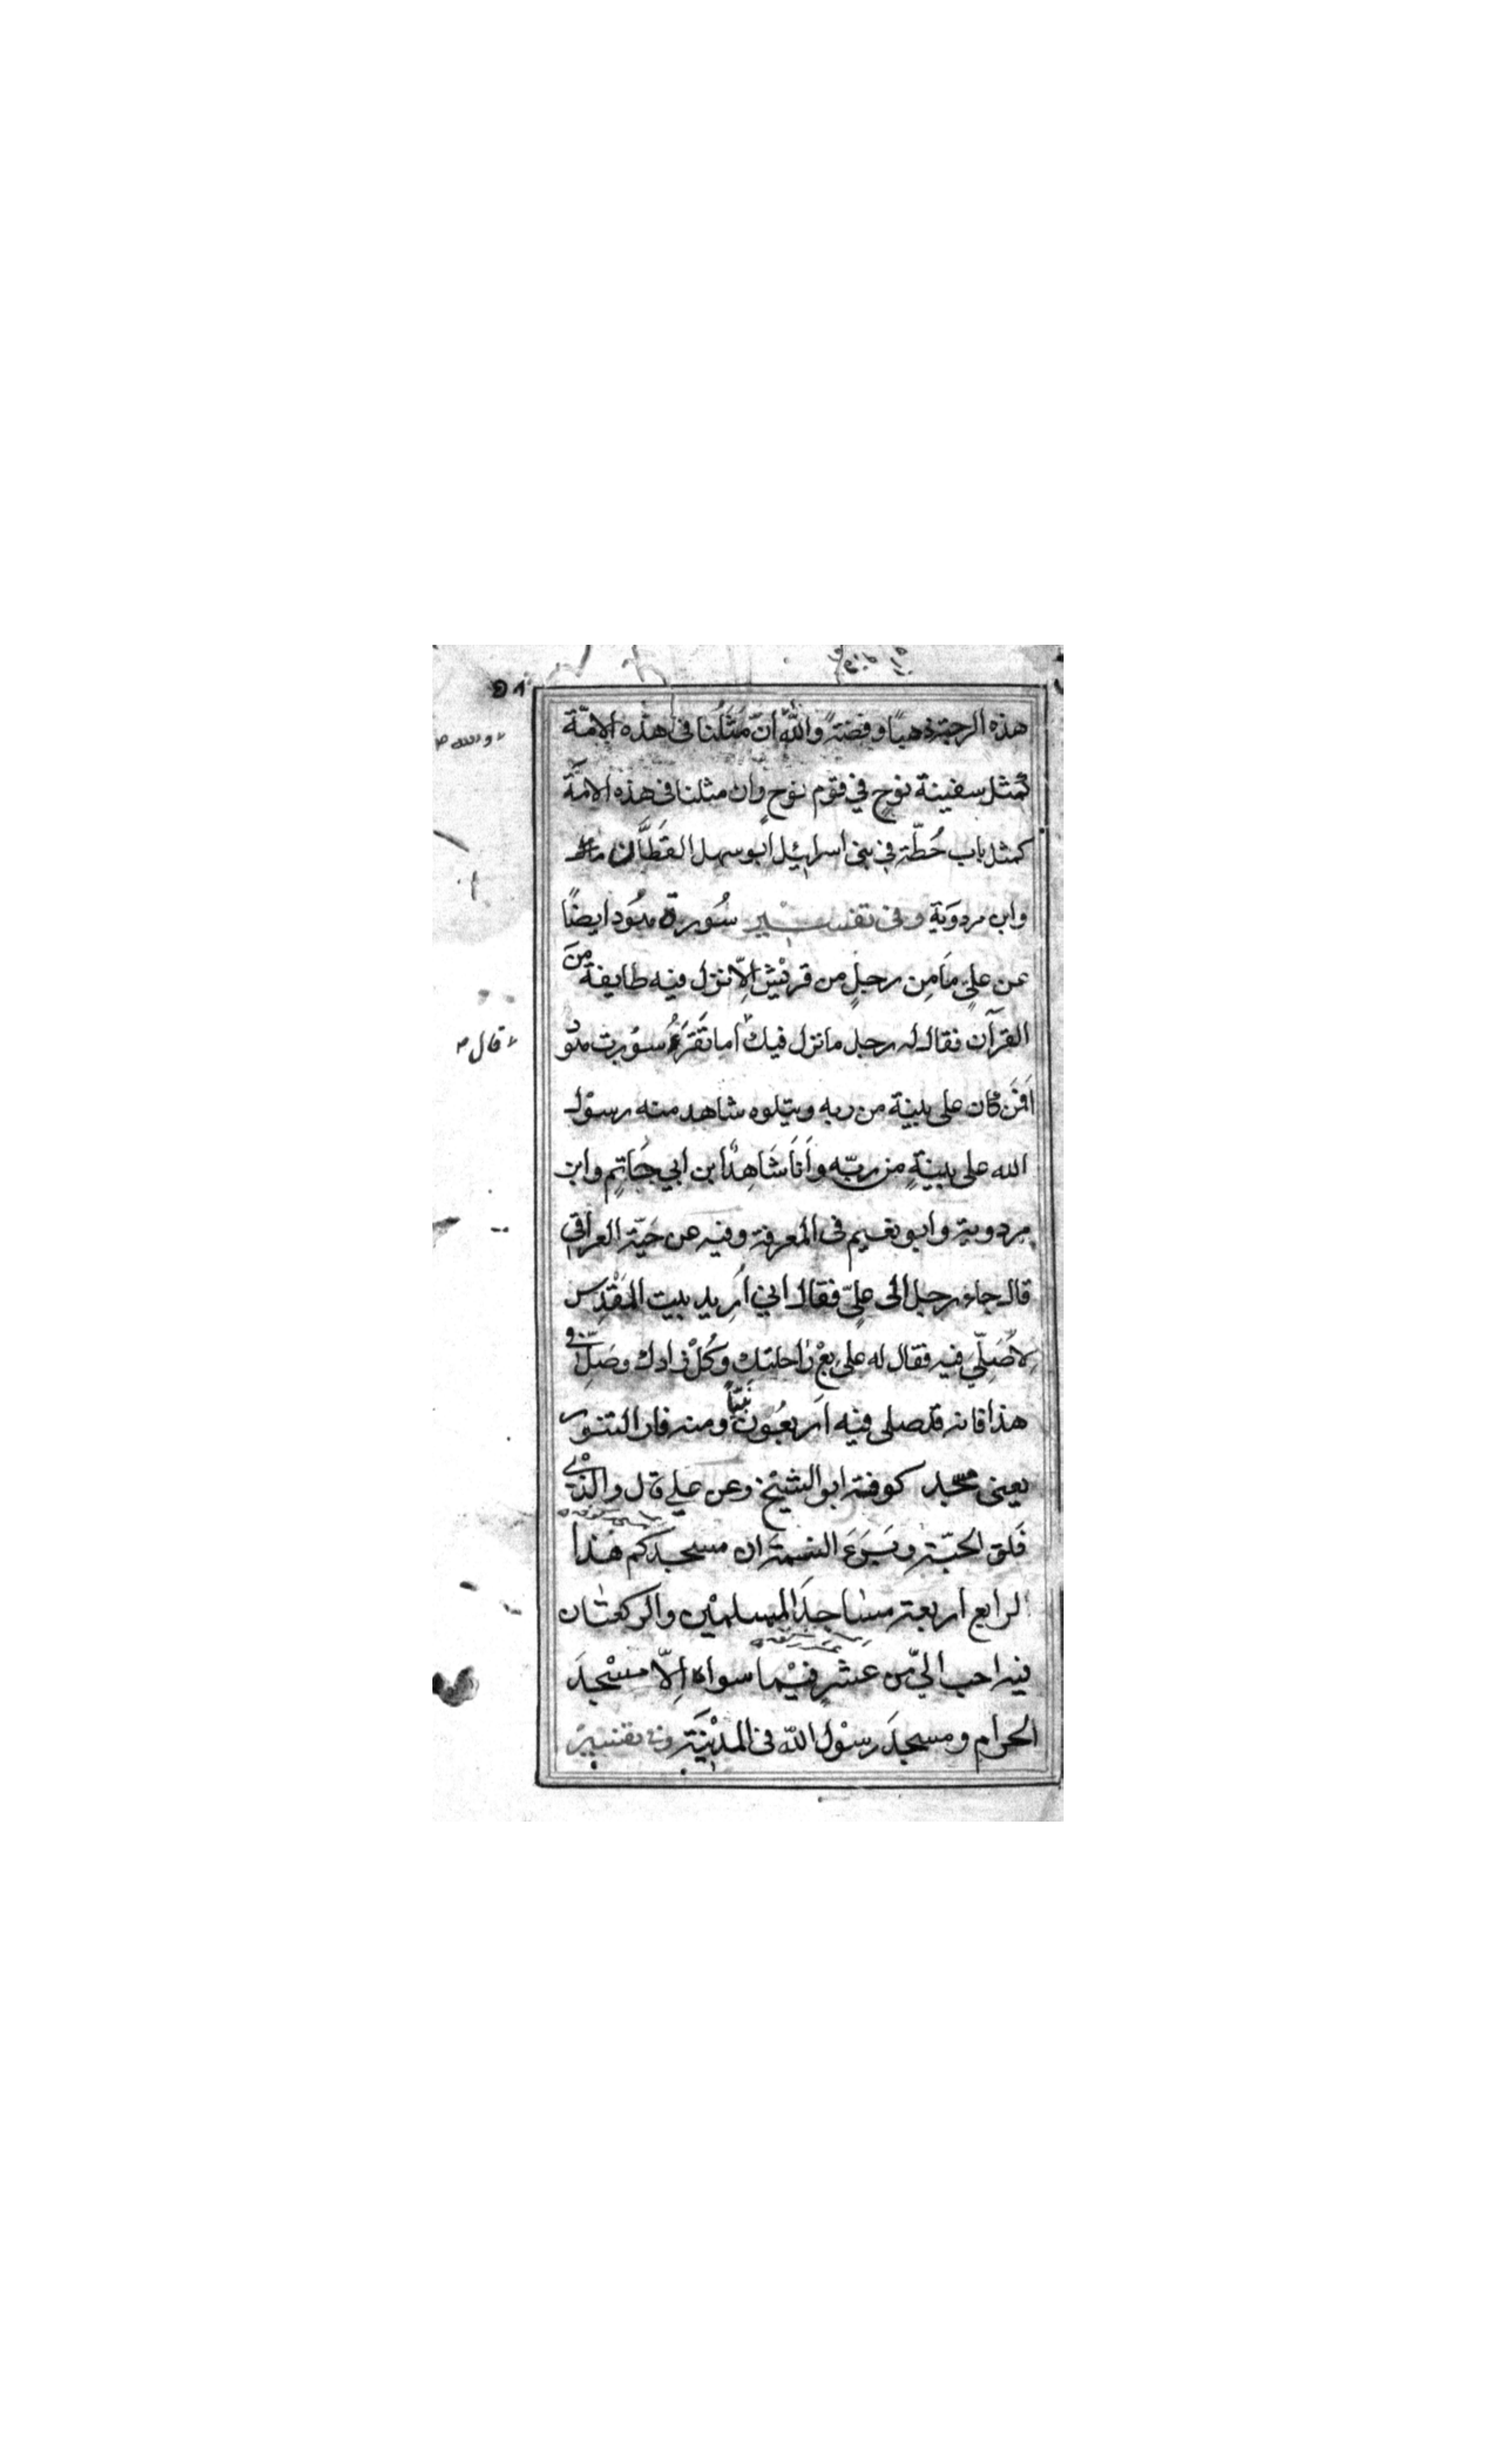 ٥٨
هذه الرحبة ذهبًا وفضةً واللّٰه انّ مَثَلُنا فى هذه الامّة
كمثل سفينة نوحٍ في قوم نوح وان مثلنا فى هذه الامّة
كمثل باب حُطّة في بنى اسرائيل ابو سهل القَطَّان
وابن مردوَية وفى تفسير سُورة هُود ايضًا
عن عليٍ مَا مِن رجلٍ من قريْش الِاّ نزل فيه طايفة مِنَ
القرآن فقال له رجل ما نزل فيك اما تَقرَءُ سُورت هُو
اَفَمَن كان على بينة من ربه ويتلوه شاهد منه رسوْل
الله على بينةٍ من ربّه وَاَنَا شَاهِدٌ ابن ابي حَاتِمٍ وابن
مردوية وابو نعيم فى المعرفة وفيه عن حَبّة العراقي
قال جاء رجل الى عليّ فقال اني اُريد بيت المَقْدِس
لاُصَلِّي فيه فقال له على بِعْ راحلتك وكُلْ زادك وصَلِّ في
هذا فانه قد صلى فيه اَربعُون نَبيًّا ومنه فار التنور
يعنى مسجد كوفة ابو الشيْخ وعن علي قال والذْي
فَلق الحبّة وبَرَءَ النسمة ان مسجدكم هٰذا
الرابع اربعة مسٰاجدَ المسلميْن والركعتٰان
فيه احب اليّ من عشرٍ فيْما سواه اِلاّ مسْجدَ
الحرام ومسجدَ رسوْل اللّه فى المديْنَة وفى تفسيرْ
قال